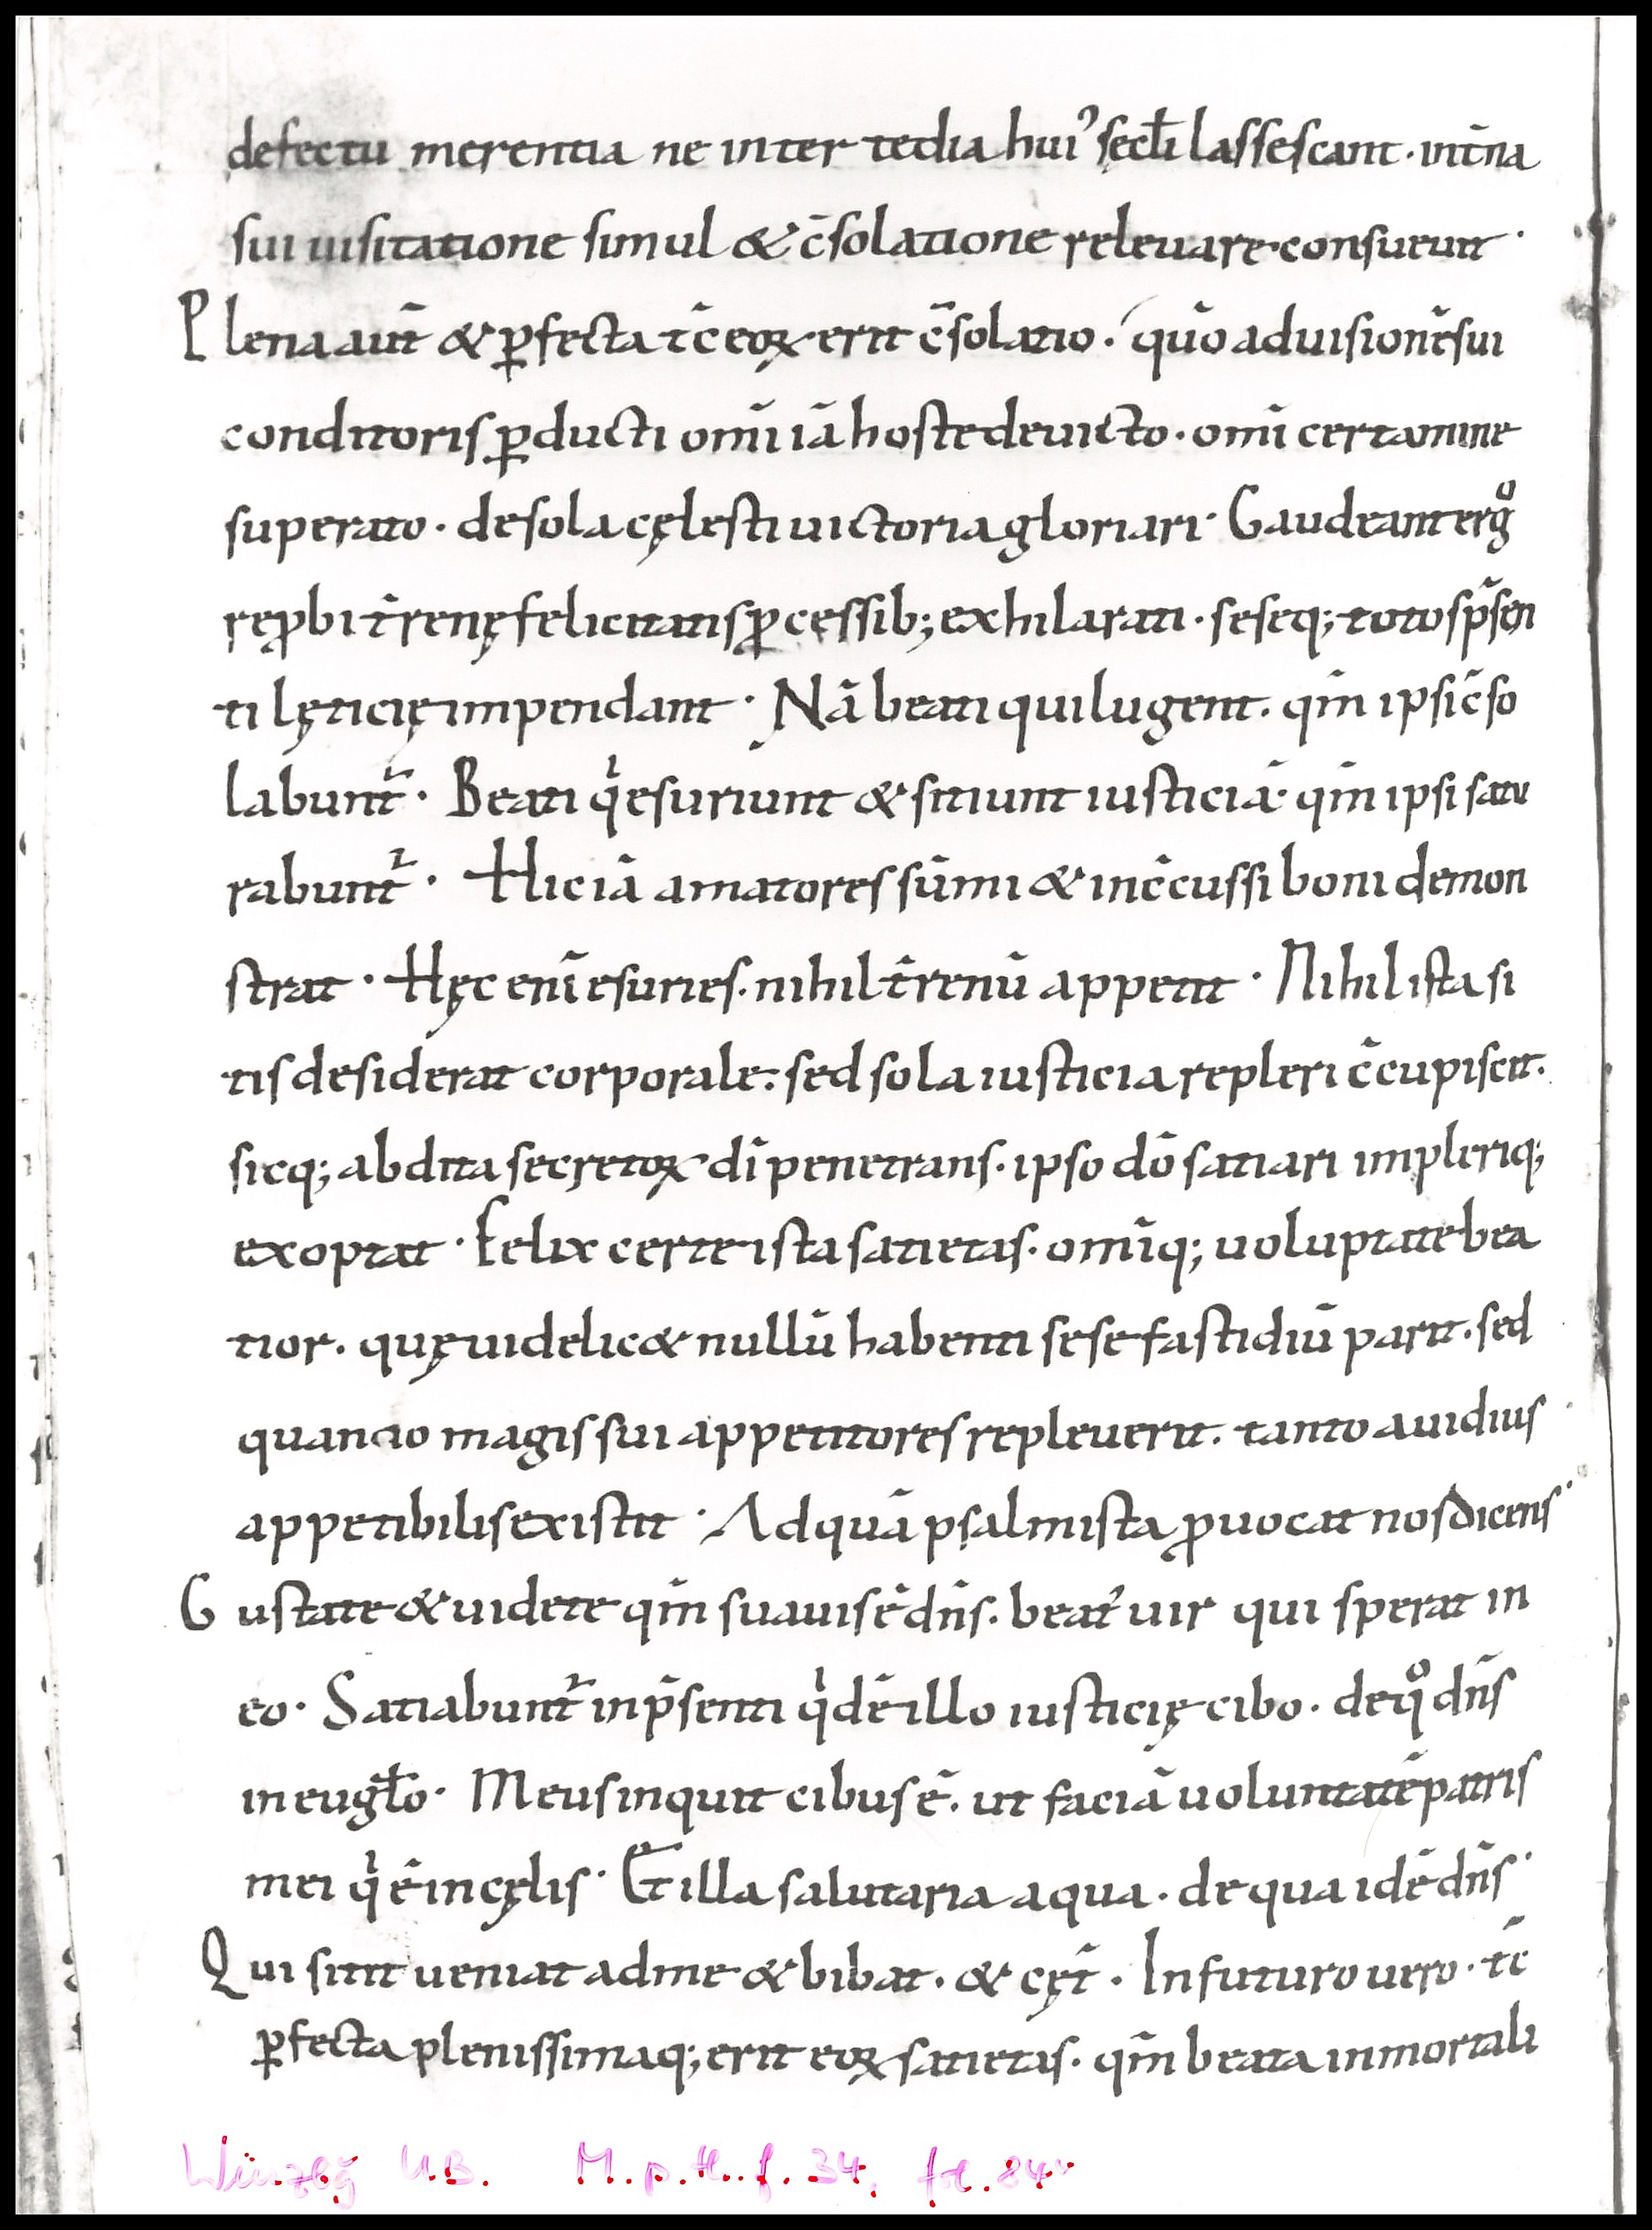 defectu merentia ne inter tedia hui᾽ sęcl̄i lassescant · int̄na
sui uisitatione simul & c̄solatione releuare consueuit ·
Plena aūt & ꝑfecta tc̄ eoꝝ erit c̄solatio · quō ad uisionē sui
conditoris ꝑducti om̄i iā hoste deuicto · om̄i certamine
superato · de sola cęlesti uictoria gloriari · Gaudeant ergͦ
reꝓbi t̄renę felicitatis ꝓcessib; exhilarati · seseq; totos p̄sen
ti lęticię impendant · Nā beati qui lugent · qm̄ ipsi c̄so
labunt᷑ · Beati qͥ esuriunt & sitiunt iusticiā · qm̄ ipsi satu
rabunt᷑ · Hic iā amatores sūmi & inc̄cussi boni demon
strat · Hęc enī esuries · nihil t̄renū appetit · Nihil ista si
tis desiderat corporale · sed sola iusticia repleri c̄cupiscit ·
sicq; abdita secretoꝝ dī penetrans · ipso dō satiari impleriq;
exoptat · Felix certe ista satietas · omīq; uoluptate bea
tior · quę uidelic& nullū habenti sese fastidiū parit · sed
quanto magis sui appetitores repleuerit · tanto auidius
appetibilis existit · Ad quā psalmista ꝓuocat nos dicens ·
Gustate & uidete qm̄ suauis ē dn̄s · beat᾽ uir qui sperat in
eo · Satiabunt᷑ in p̄senti qͥdē illo iusticię cibo · de qͦ dn̄s
in eugl̄o · Meus inquit cibus ē · ut faciā uoluntatē patris
mei qͥ ē in cęlis · Et illa salutaria aqua · de qua idē dn̄s ·
Qui sitit ueniat ad me & bibat · & cęt̄ · In futuro uero · tc̄
ꝑfecta plenissimaq; erit eoꝝ satietas · qm̄ beata inmortali
Würzbg U.B. M.p.th.f. 34, fol. 84v